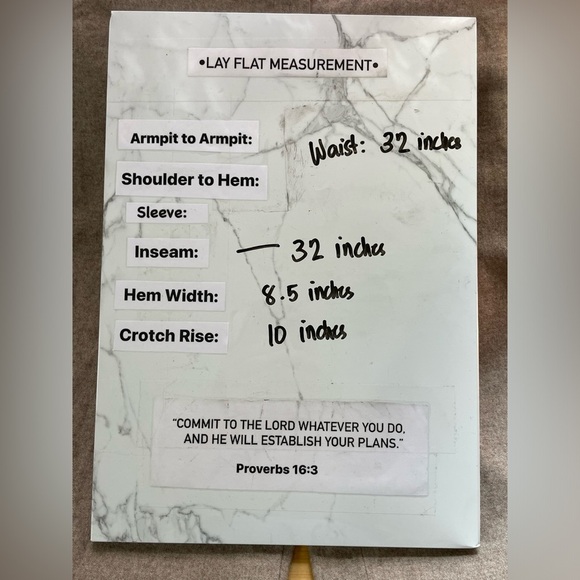 •LAY FLAT MEASUREMENT•
Armpit to Armpit:
Waist: 32 inches
Shoulder to Hem:
Sleeve:
Inseam: — 32 inches
Hem Width: 8.5 inches
Crotch Rise: 10 inches
"COMMIT TO THE LORD WHATEVER YOU DO,
AND HE WILL ESTABLISH YOUR PLANS."
Proverbs 16:3